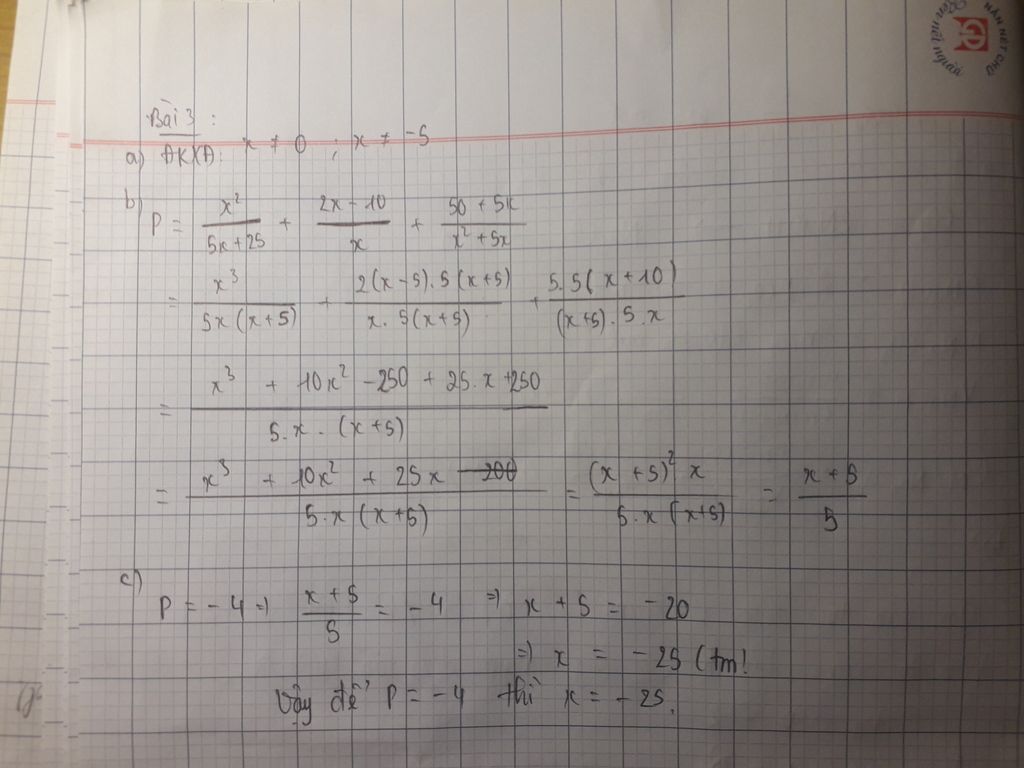 NÂN NÉT CHỮ
Rèn nết người
Bài 3 :
a) ĐKXĐ: x ≠ 0 ; x ≠ -5
b) P = x²/(5x+25) + (2x - 10)/x + (50 + 5x)/(x² + 5x)
= x³/(5x(x+5)) + (2(x-5).5(x+5))/(x.5(x+5)) + (5.5(x+10))/((x+5).5.x)
= (x³ + 10x² - 250 + 25.x + 250)/(5.x.(x+5))
= (x³ + 10x² + 25x)/(5.x(x+5)) = ((x+5)² x)/(5.x(x+5)) = (x+5)/5
c)
P = -4 => (x+5)/5 = -4 => x + 5 = -20
=> x = -25 (tm!
Vậy để P = -4 thì x = -25.